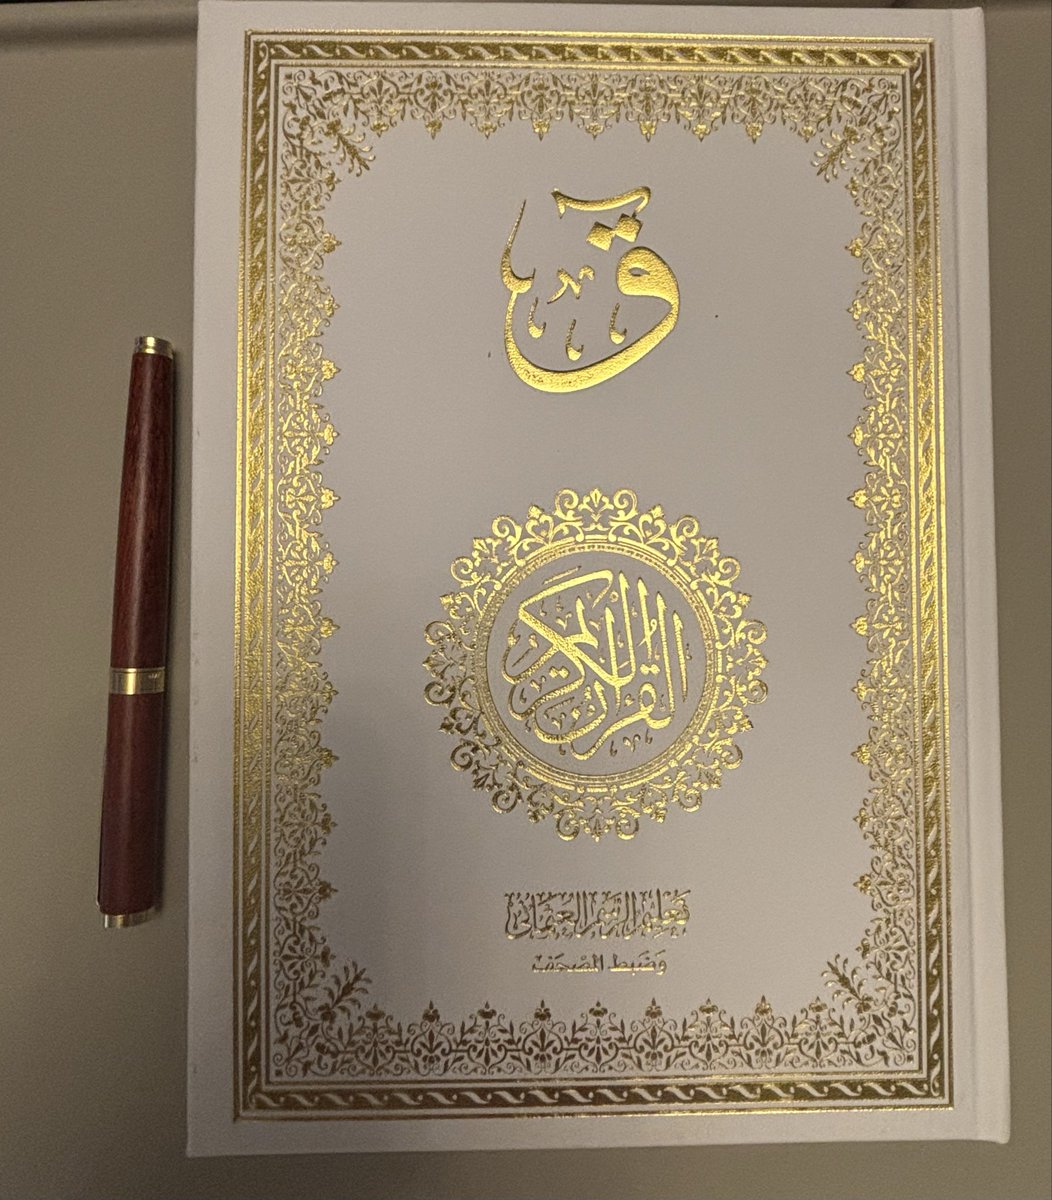 قۤ
القرآن الكريم
تعليم الرسم العثماني
وضبط المصحف